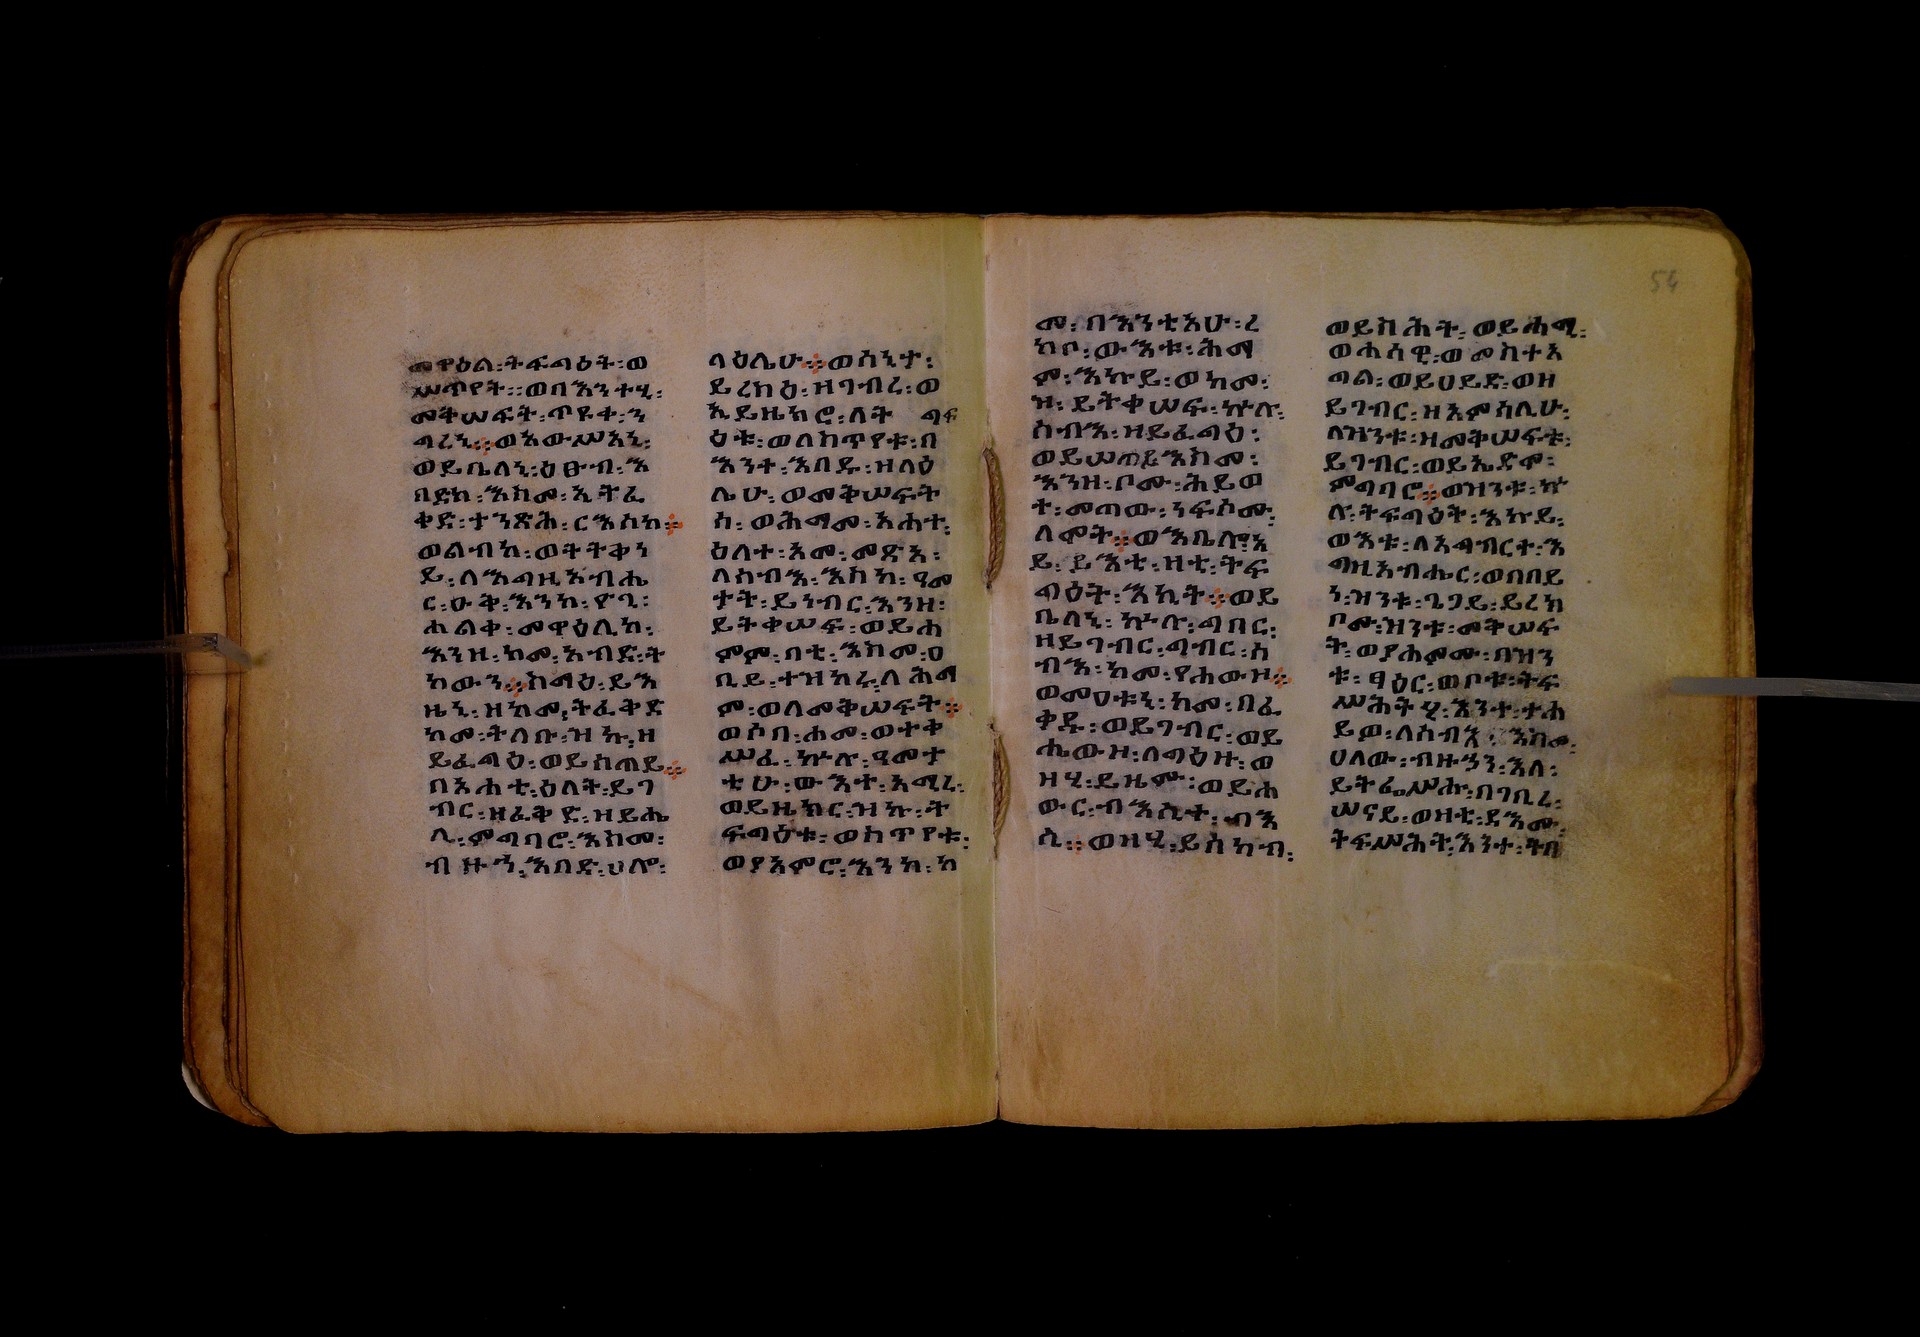 መዋዕል፡ትፍግዕት፡ወ
ሥጥየት፡፡ወበእንተሂ፡
መቅሠፍት፡ጥዩቀ፡ን
ግረኒ፡፡ወአውሥአኒ፡
ወይቤለኒ፡ዕፁብ፡እ
በድከ፡እስመ፡ኢትፈ
ቀድ፡ተንጽሕ፡ርእስከ፡፡
ወልብከ፡ወትትቅነ
ይ፡ለእግዚአብሔ
ር፡ዑቅ፡እንከ፡ዮጊ፡
ሐልቀ፡መዋዕሊከ፡
እንዘ፡ከመ፡አብድ፡ት
ከውን፡፡ስማዕ፡ይእ
ዜኒ፡ዘከመ፡ትፈቅድ
ከመ፡ትለቡ፡ዝኩ፡ዘ
ይፈግዕ፡ወይሰጠይ፡፡
በአሐቲ፡ዕለት፡ይገ
ብር፡ዘፈቅደ፡ዘይሔ
ሊ፡ምግባሮ፡እስመ፡
ብዙኅ፡እበድ፡ሀሎ፡
ላዕሌሁ፡፡ወሰኒታ፡
ይረከዕ፡ዘገብረ፡ወ
ኢይዜከሮ፡ለት ግፍ
ዕቱ፡ወለስጥየቱ፡በ
እንተ፡እበዱ፡ዘላዕ
ሌሁ፡ወመቅሠፍት
ሰ፡ወሕማመ፡አሐተ፡
ዕለተ፡እመ፡መጽአ፡
ላሰብእ፡እስከ፡ዓመ
ታት፡ይነብር፡እንዘ፡
ይትቀሠፍ፡ወይሐ
ምም፡በቲ፡እስመ፡ዐ
ቢይ፡ተዝከሩ፡ለሕማ
ም፡ወለመቅሠፍት፡፡
ወሶበ፡ሐመ፡ወተቀ
ሥፈ፡ኵሉ፡ዓመታ
ቲሁ፡ውእተ፡አሚረ፡
ወይዜከር፡ዝኩ፡ት
ፍግዕቱ፡ወስጥየቱ፡
ወያአምሮ፡እንከ፡ከ
መ፡በእንቲአሁ፡ረ
ከቦ፡ውእቱ፡ሕማ
ም፡እኩይ፡ወከመ፡
ዝ፡ይትቀሠፍ፡ኵሉ፡
ሰብእ፡ዘይፈግዕ፡
ወይሠጠይ እስመ፡
እንዘ፡ቦሙ፡ሕይወ
ት፡መጠው፡ነፍሶሙ፡
ለሞት፡፡ወእቤሎ፡አ
ይ፡ይእቲ፡ዘቲ፡ትፍ
ግዕት፡እኪት፡፡ወይ
ቤለኒ፡ኵሉ፡ግበር፡
ዘይገብር፡ግብር፡ሰ
ብእ፡ከመ፡የሐውዝ፡፡
ወመዐቱኒ፡ከመ፡በፈ
ቀዱ፡ወይገብር፡ወይ
ሔውዝ፡ለግዕዙ፡ወ
ዘሂ፡ይዜሙ፡ወይሐ
ውር፡ብእሲተ፡ብእ
ሲ፡፡ወዘሂ፡ይሰካብ፡
ወይስሕት፡ወይሐሚ፡
ወሐሳዊ፡ወመስተአ
ግል፡ወይዐይድ፡ወዘ
ይገብር፡ዘአምሳሊሁ፡
ለዝንቱ፡ዘመቅሠፍቱ፡
ይገብር፡ወይኤድም፡
ምግባሮ፡፡ወዝንቱ፡ኵ
ሉ፡ትፍግዕት፡እኩይ፡
ውእቱ፡ለአግብርተ፡እ
ግዚአብሔር፡ወበበይ
ነ፡ዝንቱ፡ጌጋይ፡ይረክ
ቦሙ፡ዝንቱ፡መቅሠፍ
ት፡ወያሐምሙ፡በዝን
ቱ፡ፃዕር፡ወቦቱ፡ትፍ
ሥሕትሂ፡እንተ፡ታሐ
ይወ፡ለሰብእ፡እስመ፡
ሀለው፡ብዙኃን፡እለ፡
ይትፌሥሑ፡በገቢረ፡
ሠናይ፡ወዘቲ፡ይእቲ፡
ትፍሥሕት፡እንተ፡ትበ